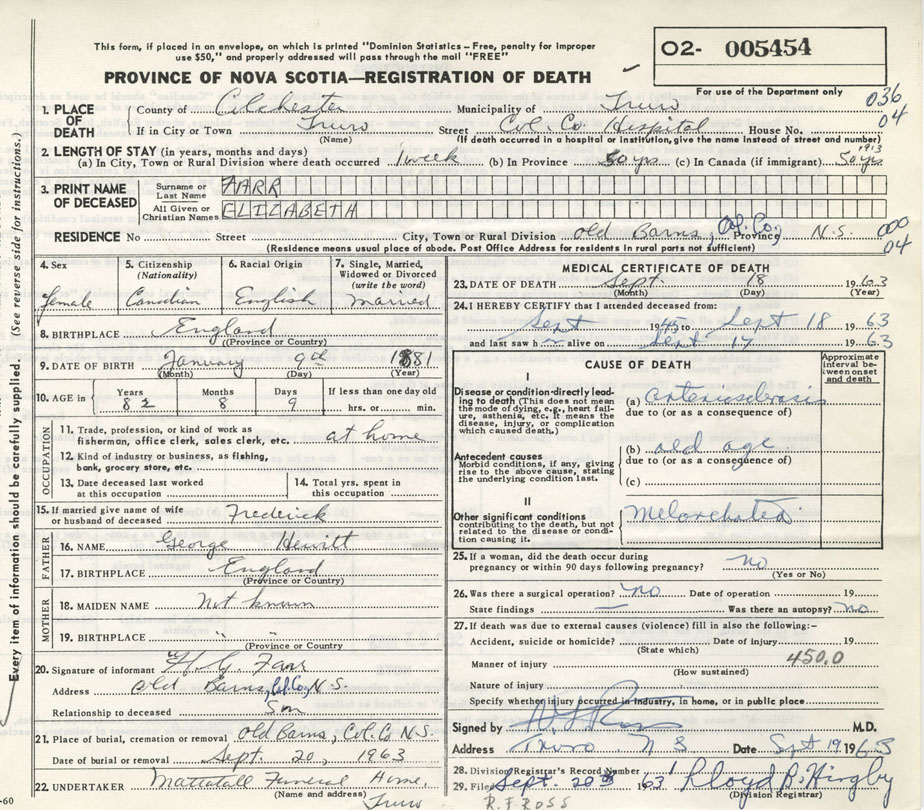 This form, if placed in an envelope, on which is printed "Dominion Statistics – Free, penalty for improper
use $50," and properly addressed will pass through the mail "FREE"
O2- 005454
PROVINCE OF NOVA SCOTIA—REGISTRATION OF DEATH
For use of the Department only
036
04
1. PLACE OF DEATH County of Colchester Municipality of Truro
If in City or Town Truro Street Col. Co. Hospital House No.
(Name) (If death occurred in a hospital or institution, give the name instead of street and number)
2. LENGTH OF STAY (in years, months and days)
1913
(a) In City, Town or Rural Division where death occurred 1 week (b) In Province 50 yrs (c) In Canada (if immigrant) 50 yrs
3. PRINT NAME OF DECEASED
Surname or Last Name FARR
All Given or Christian Names ELIZABETH
RESIDENCE No Street City, Town or Rural Division Old Barns, Col. Co. Province N.S. 000
04
(Residence means usual place of abode. Post Office Address for residents in rural parts not sufficient)
4. Sex female
5. Citizenship (Nationality) Canadian
6. Racial Origin English
7. Single, Married, Widowed or Divorced (write the word) married
8. BIRTHPLACE England
(Province or Country)
9. DATE OF BIRTH January 9th 1881
(Month) (Day) (Year)
10. AGE in Years 82 Months 8 Days 9 If less than one day old hrs. or min.
OCCUPATION
11. Trade, profession, or kind of work as
fisherman, office clerk, sales clerk, etc. at home
12. Kind of industry or business, as fishing,
bank, grocery store, etc.
13. Date deceased last worked
at this occupation
14. Total yrs. spent in
this occupation
15. If married give name of wife
or husband of deceased Frederick
FATHER
16. NAME George Hewitt
17. BIRTHPLACE England
(Province or Country)
MOTHER
18. MAIDEN NAME Not known
19. BIRTHPLACE " "
(Province or Country)
20. Signature of informant H. G. Farr
Address Old Barns, Col. Co, N.S.
Relationship to deceased Son
21. Place of burial, cremation or removal Old Barns, Col. Co. N.S.
Date of burial or removal Sept. 20, 1963
22. UNDERTAKER Mattatall Funeral Home,
(Name and address) Truro
MEDICAL CERTIFICATE OF DEATH
23. DATE OF DEATH Sept. 18 1963
(Month) (Day) (Year)
24. I HEREBY CERTIFY that I attended deceased from:
Sept 1945 to Sept 18 1963
and last saw h alive on Sept 17 1963
CAUSE OF DEATH
Approximate
interval be-
tween onset
and death
I
Disease or condition directly lead-
ing to death (This does not mean
the mode of dying, e.g., heart fail-
ure, asthenia, etc. It means the
disease, injury, or complication
which caused death.)
(a) arteriosclerosis
due to (or as a consequence of)
Antecedent causes
Morbid conditions, if any, giving
rise to the above cause, stating
the underlying condition last.
(b) old age
due to (or as a consequence of)
(c)
II
Other significant conditions
contributing to the death, but not
related to the disease or condi-
tion causing it.
25. If a woman, did the death occur during
pregnancy or within 90 days following pregnancy? no
(Yes or No)
26. Was there a surgical operation? no Date of operation 19
State findings — Was there an autopsy? no
27. If death was due to external causes (violence) fill in also the following:-
Accident, suicide or homicide? Date of injury 19
(State which)
450.0
Manner of injury
(How sustained)
Nature of injury
Specify whether injury occurred in industry, in home, or in public place
Signed by M.D.
Address Truro N S Date Sept 19 1963
28. Division Registrar's Record Number
29. Filed Sept. 20 1963
(Division Registrar)
R.F. ROSS
Every item of information should be carefully supplied. (See reverse side for instructions.)
-60